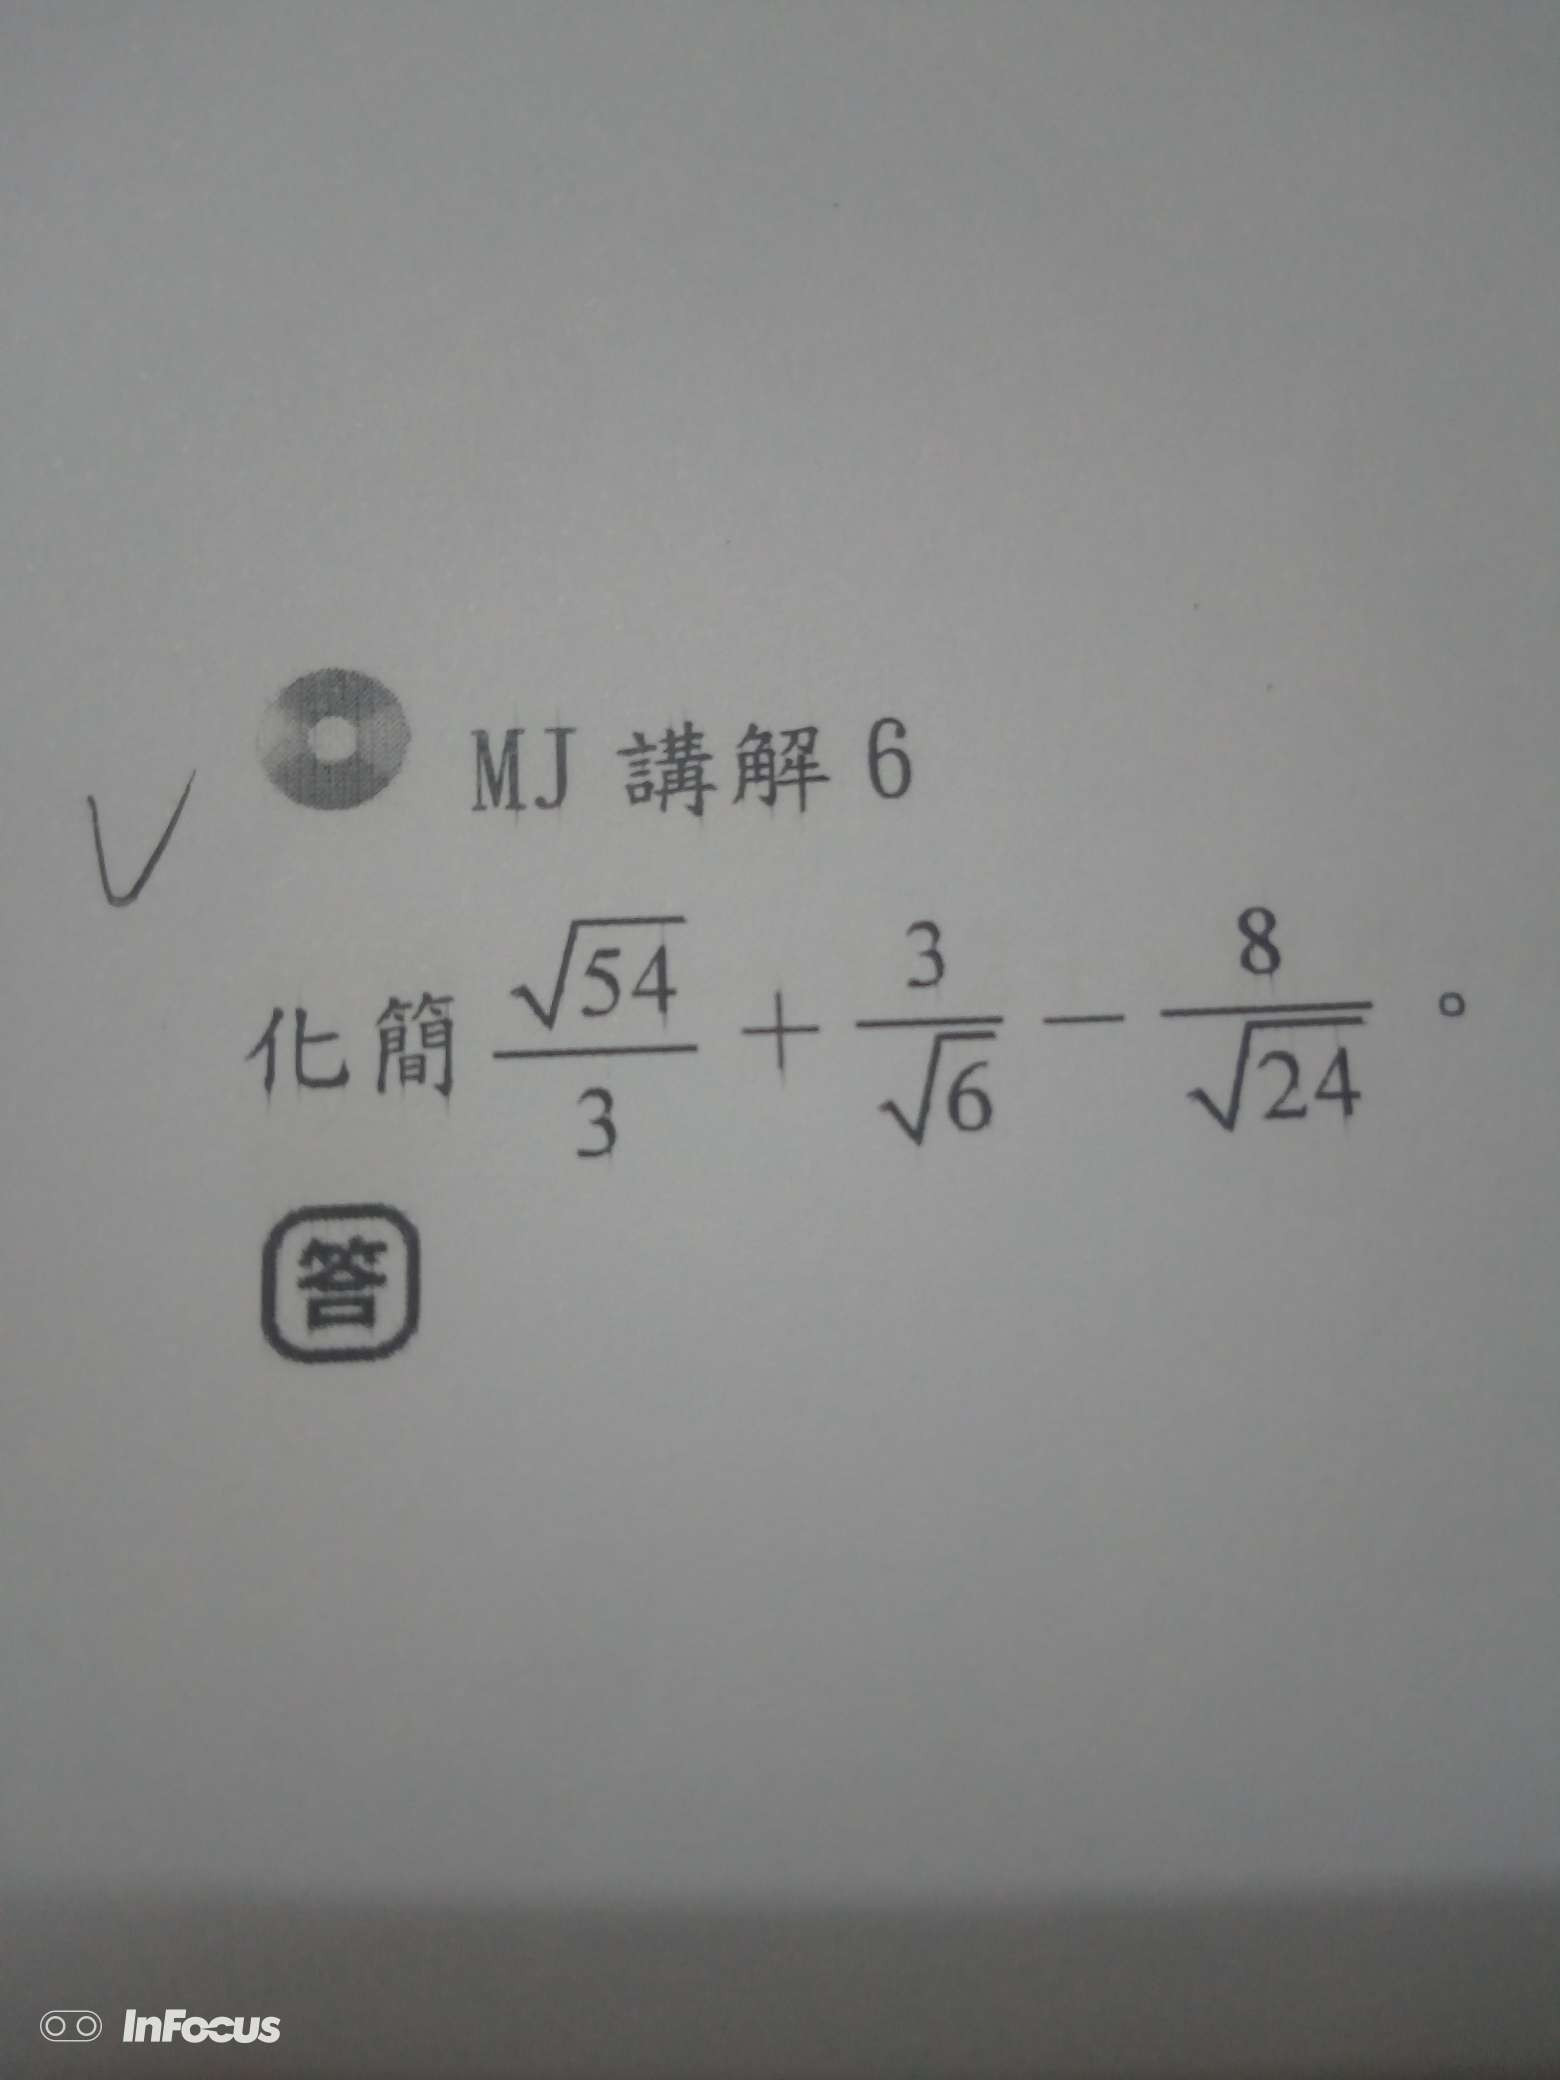 MJ 講解 6
化簡 √54/3 + 3/√6 − 8/√24 。
答
InFocus